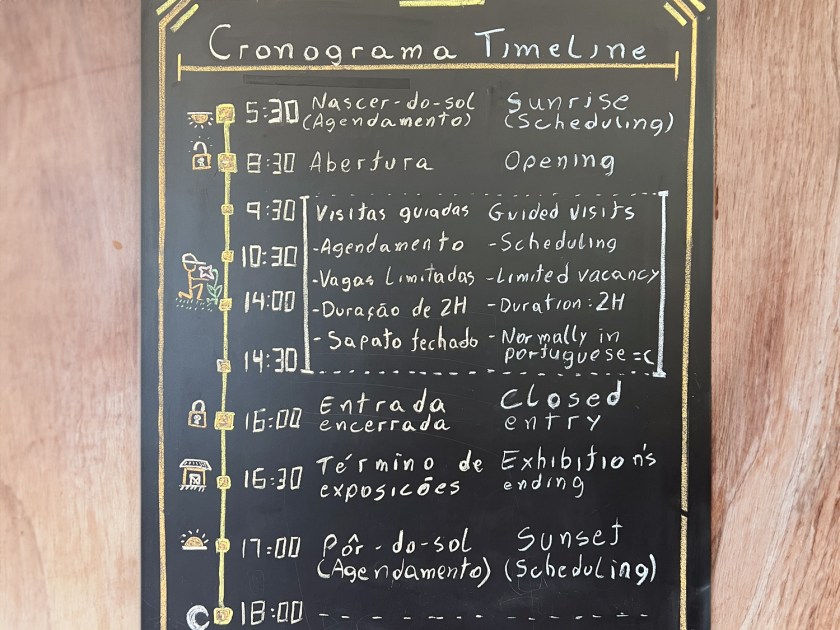 Cronograma Timeline
5:30 Nascer-do-sol Sunrise
(Agendamento) (Scheduling)
8:30 Abertura Opening
9:30 Visitas guiadas Guided visits
-Agendamento -Scheduling
10:30
-Vagas Limitadas -Limited vacancy
14:00 -Duração de 2H -Duration: 2H
-Sapato fechado -Normally in
14:30 portuguese =(
16:00 Entrada Closed
encerrada entry
16:30 Término de Exhibition's
exposicões ending
17:00 Pôr-do-sol Sunset
(Agendamento) (Scheduling)
18:00 - - - - - - - - - -